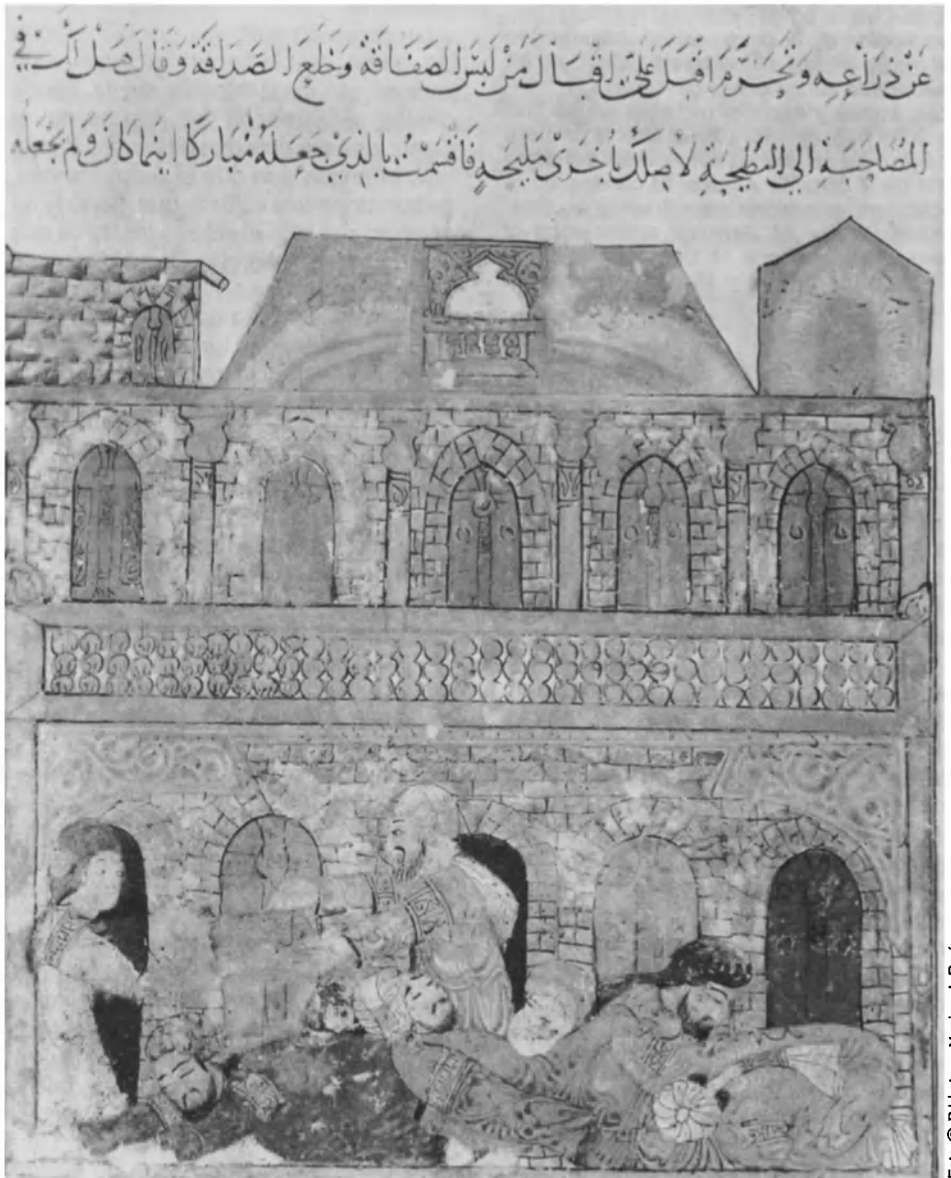 عَنْ ذِرَاعِهِ وَتَحَزَّمَ اقْبَلَ عَلَىَّ اقْبَالَ مَنْ لَبِسَ الصَفَاقَةَ وَخَلَعَ الصَدَاقَةَ وَقَالَ هَلْ لَكَ فِي
المُصَاحَبَةِ الى البَطِيحَةِ لاَصِلَكَ بِأُخْرَى مَلِيحَةٍ فَاقْسَمْتُ بِالذِي جَعَلَهُ مُبَارَكًا اينَمَا كَانَ وَلَمْ يَجْعَلْهُ